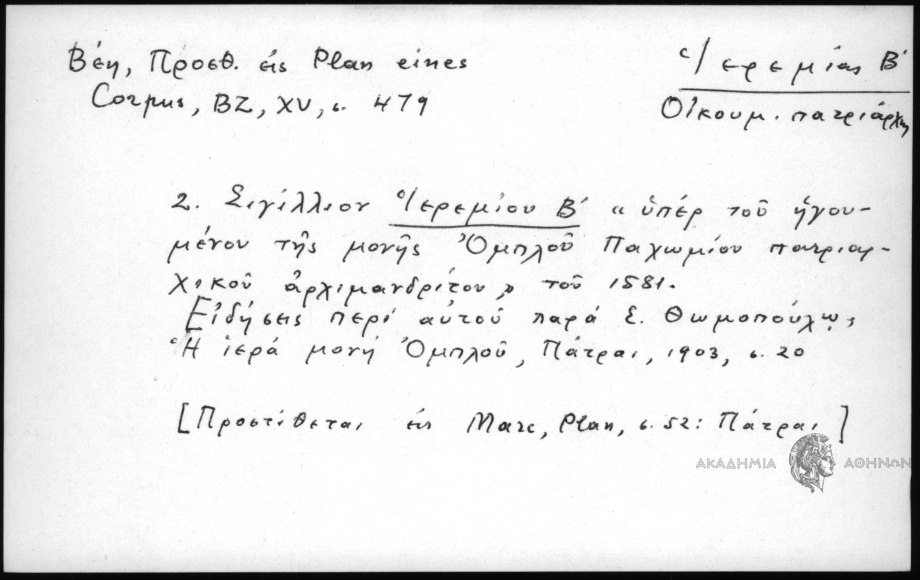 Βέη, Προσθ. εἰς Plan eines
Corpus, BZ, XV, σ. 479
Ἱερεμίας Β´
Οἰκουμ. πατριάρχης
2. Σιγίλλιον Ἱερεμίου Β´ «ὑπέρ τοῦ ἡγου-
μένου τῆς μονῆς Ὀμπλοῦ Παχωμίου πατριαρ-
χικοῦ ἀρχιμανδρίτου» τοῦ 1581.
Εἰδήσεις περί αὐτοῦ παρά Σ. Θωμοπούλῳ,
Ἡ ἱερά μονή Ὀμπλοῦ, Πάτραι, 1903, σ. 20
[Προστίθεται εἰς Marc, Plan, σ. 52: Πάτραι]
ΑΚΑΔΗΜΙΑ ΑΘΗΝΩΝ